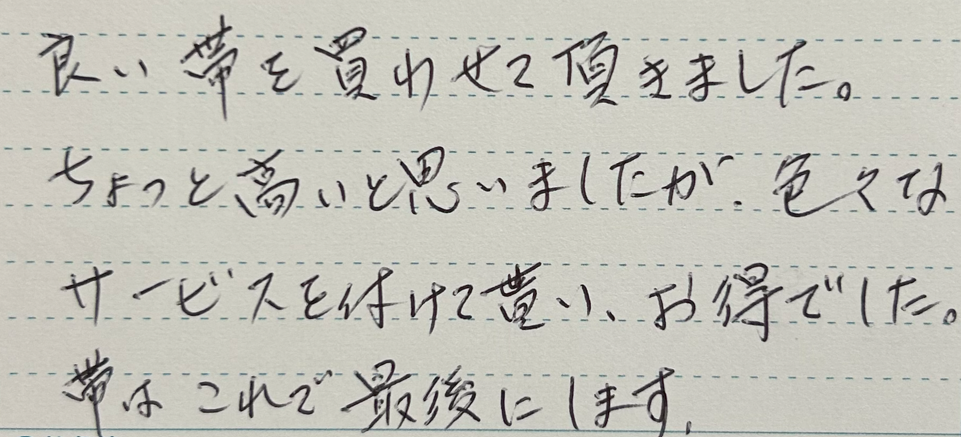 良い帯を買わせて頂きました。
ちょっと高いと思いましたが、色々な
サービスを付けて貰い、お得でした。
帯はこれで最後にします。